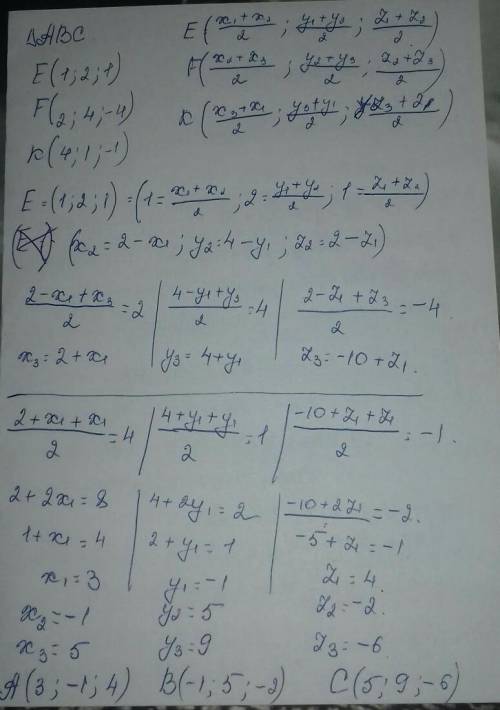 △ABC E(x₁+x₂/2 ; y₁+y₂/2 ; z₁+z₂/2)
E(1; 2; 1) F(x₂+x₃/2 ; y₂+y₃/2 ; z₂+z₃/2)
F(2; 4; -4) K(x₃+x₁/2 ; y₃+y₁/2 ; z₃+z₁/2)
K(4; 1; -1)
E=(1; 2; 1)=(1=x₁+x₂/2 ; 2=y₁+y₂/2 ; 1=z₁+z₂/2)
(x₂=2-x₁; y₂=4-y₁; z₂=2-z₁)
2-x₁+x₃/2=2 | 4-y₁+y₃/2=4 | 2-z₁+z₃/2=-4.
x₃=2+x₁ | y₃=4+y₁ | z₃=-10+z₁.
2+x₁+x₁/2=4 | 4+y₁+y₁/2=1 | -10+z₁+z₁/2=-1.
2+2x₁=8 | 4+2y₁=2 | -10+2z₁=-2.
1+x₁=4 | 2+y₁=1 | -5+z₁=-1
x₁=3 y₁=-1 z₁=4.
x₂=-1 y₂=5 z₂=-2.
x₃=5 y₃=9 z₃=-6.
A(3; -1; 4) B(-1; 5; -2) C(5; 9; -6)